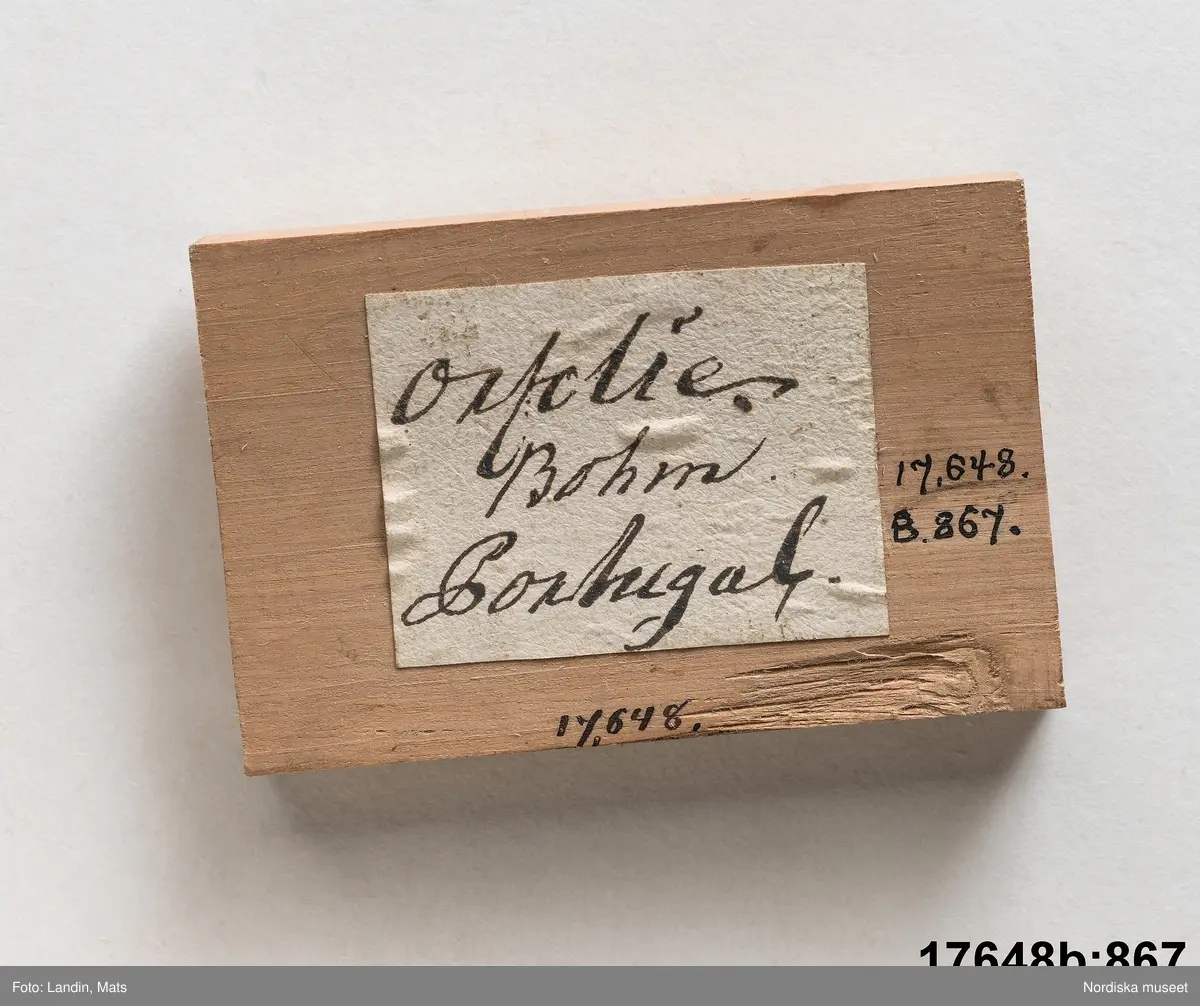 Bohm.
Portugal.
17,648.
B.867.
17,648.
17648b:867
Foto: Landin, Mats
Nordiska museet